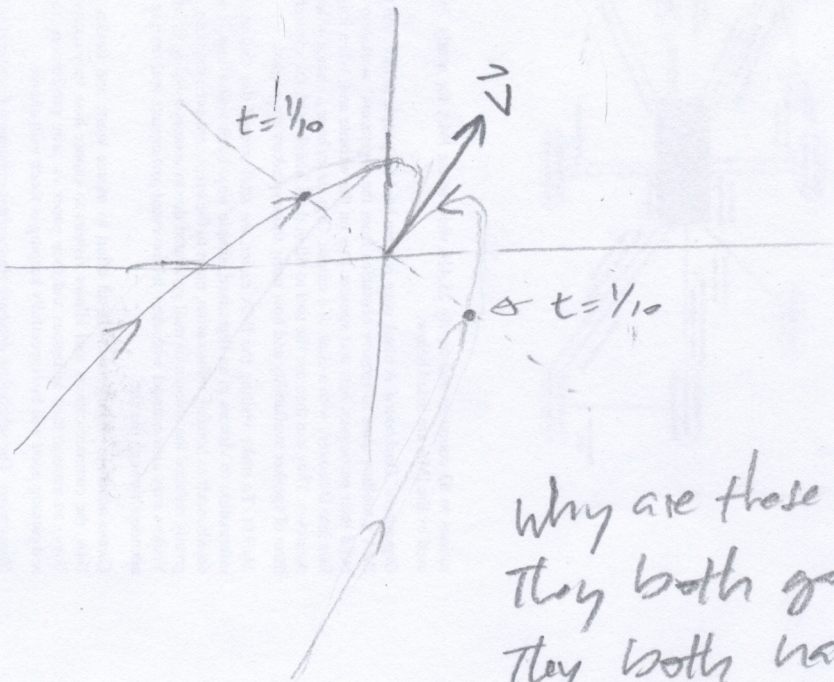 t=1/10
V
t=1/10
Why are those
They both
They both